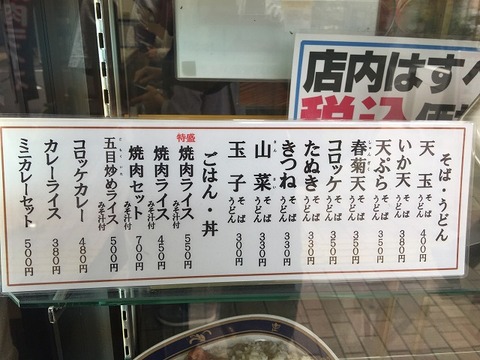 店内はすべ
税込
そば・うどん
天玉 そば うどん 400円
いか天 そば うどん 380円
天ぷら そば うどん 350円
春菊天 そば うどん 350円
コロッケ そば うどん 350円
たぬき そば うどん 330円
きつね そば うどん 330円
山菜 そば うどん 330円
玉子 そば うどん 300円
ごはん・丼
特盛
焼肉ライス みそ汁付 550円
焼肉ライス みそ汁付 450円
焼肉セット 700円
五目炒めライス みそ汁付 500円
コロッケカレー 480円
カレーライス 380円
ミニカレーセット 500円